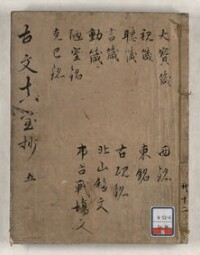 大寳箴 西銘
視箴 東銘
聽箴 古硯銘
言箴 北山移文
動箴 弔古戰塲文
陋室銘
克己銘
古文真宝抄 五